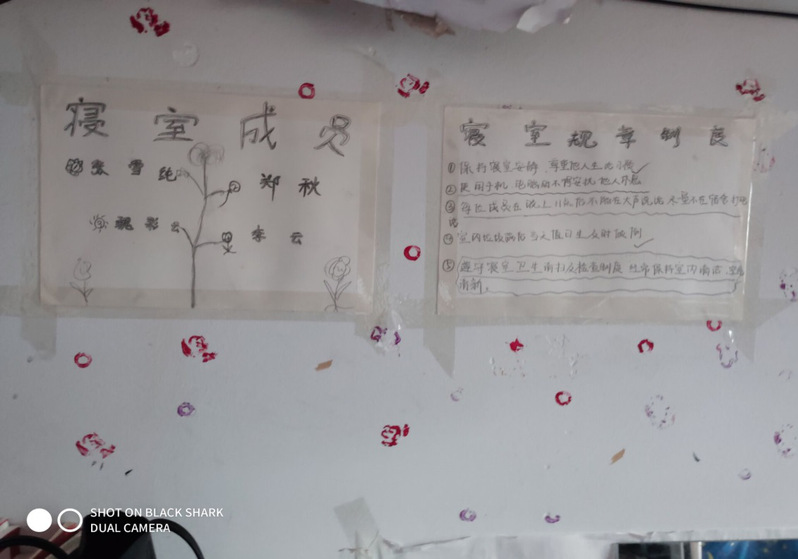 寝室成员
张雪纯
郑秋
祝彩云
李云
寝室规章制度
①保持寝室安静,尊重他人生活习惯
②使用手机、电脑时不得妨碍他人休息
③每位成员在晚上11点后不能大声说话,尽量不在宿舍打电
话
④室内垃圾满后当天值日生及时倒
⑤遵守寝室卫生 制度 经常保持室内清洁、空气
清新。
SHOT ON BLACK SHARK
DUAL CAMERA